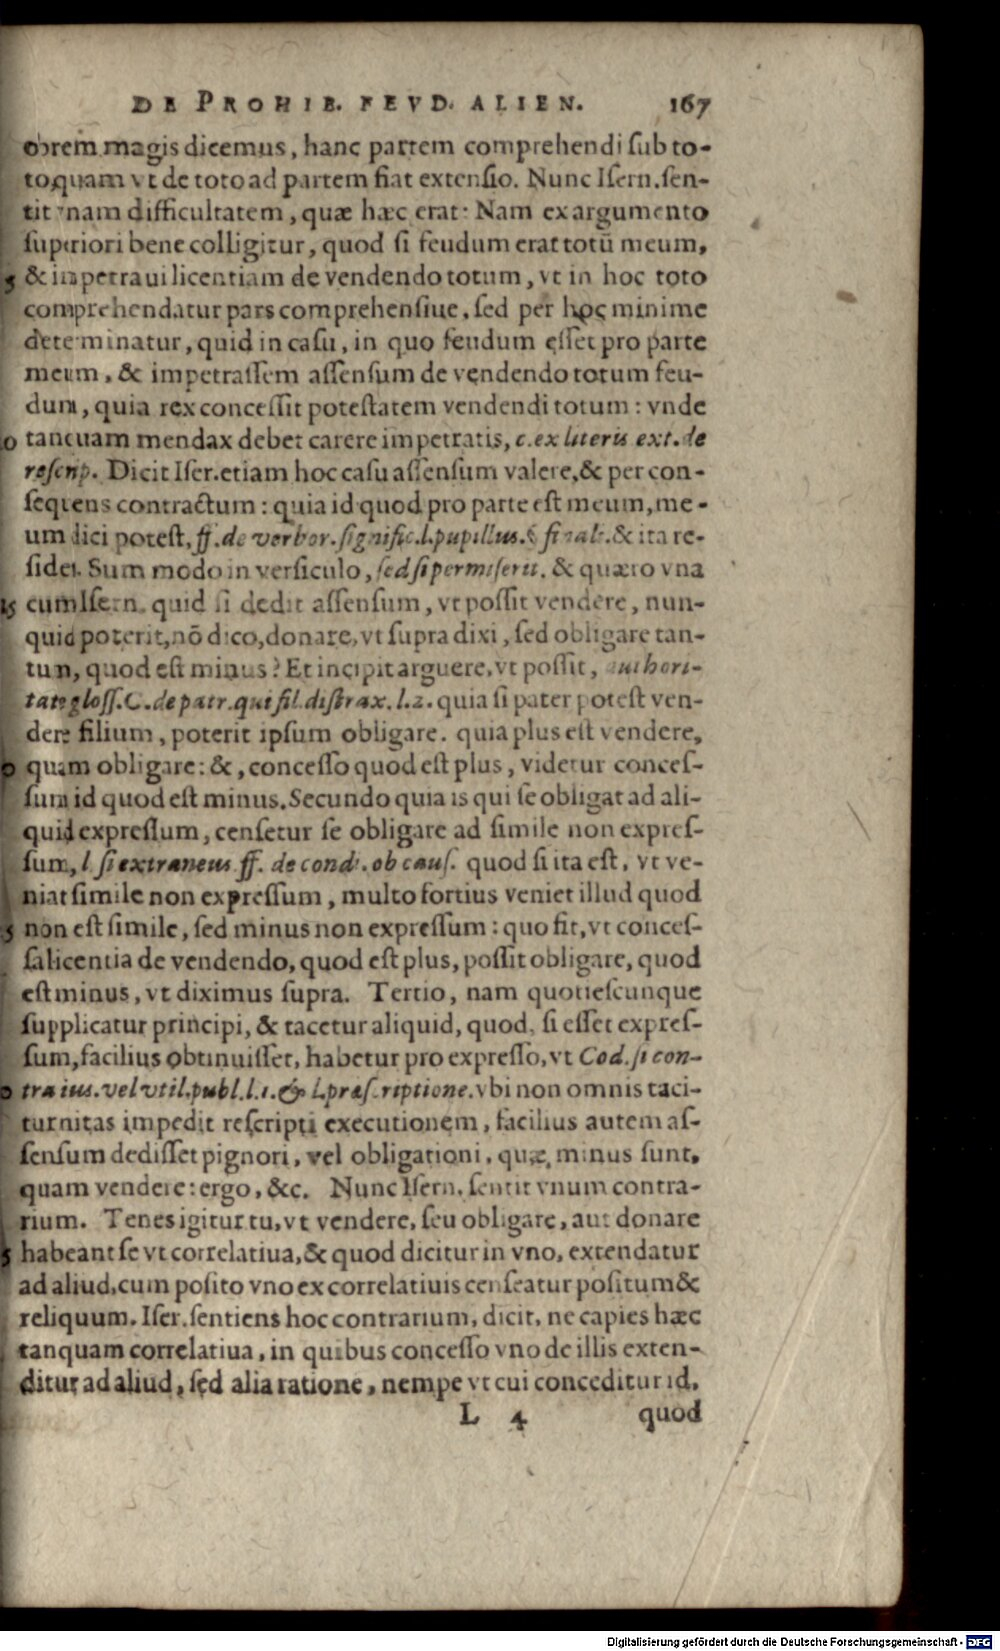 DE PROHIB. FEVD. ALIEN. 167
obrem magis dicemus, hanc partem comprehendi sub to-
to, quam vt de toto ad partem fiat extensio. Nunc Isern. sen-
tit vnam difficultatem, quæ hæc erat: Nam ex argumento
superiori bene colligitur, quod si feudum erat totũ meum,
5 & impetraui licentiam de vendendo totum, vt in hoc toto
comprehendatur pars comprehensiue, sed per hoc minime
determinatur, quid in casu, in quo feudum esset pro parte
meum, & impetrassem assensum de vendendo totum feu-
dum, quia rex concessit potestatem vendendi totum: vnde
0 tanquam mendax debet carere impetratis, c. ex literis ext. de
rescrip. Dicit Iser. etiam hoc casu assensum valere, & per con-
sequens contractum: quia id quod pro parte est meum, me-
um dici potest, ff. de verbor. signific. l. pupillus. § final. & ita re-
sidet. Sum modo in versiculo, sed si permiserit. & quæro vna
15 cum Isern. quid si dedit assensum, vt possit vendere, nun-
quid poterit, nõ dico, donare, vt supra dixi, sed obligare tan-
tum, quod est minus? Et incipit arguere, vt possit, authori-
tate gloss. C. de patr. qui fil. distrax. l. 2. quia si pater potest ven-
dere filium, poterit ipsum obligare. quia plus est vendere,
0 quam obligare: &, concesso quod est plus, videtur conces-
sum id quod est minus. Secundo quia is qui se obligat ad ali-
quid expressum, censetur se obligare ad simile non expres-
sum, l si extraneus ff. de condi. ob caus. quod si ita est, vt ve-
niat simile non expressum, multo fortius veniet illud quod
5 non est simile, sed minus non expressum: quo fit, vt conces-
sa licentia de vendendo, quod est plus, possit obligare, quod
est minus, vt diximus supra. Tertio, nam quotiescunque
supplicatur principi, & tacetur aliquid, quod, si esset expres-
sum, facilius obtinuisset, habetur pro expresso, vt Cod. si con-
0 tra ius. vel vtil. publ. l. 1. & l. præscriptione. vbi non omnis taci-
turnitas impedit rescripti executionem, facilius autem as-
sensum dedisset pignori, vel obligationi, quæ minus sunt,
quam vendere: ergo, &c. Nunc Isern. sentit vnum contra-
rium. Tenes igitur tu, vt vendere, seu obligare, aut donare
5 habeant se vt correlatiua, & quod dicitur in vno, extendatur
ad aliud, cum posito vno ex correlatiuis censeatur positum &
reliquum. Iser. sentiens hoc contrarium, dicit, ne capies hæc
tanquam correlatiua, in quibus concesso vno de illis exten-
ditur ad aliud, sed alia ratione, nempe vt cui conceditur id,
L 4 quod
Digitalisierung gefördert durch die Deutsche Forschungsgemeinschaft - DFG